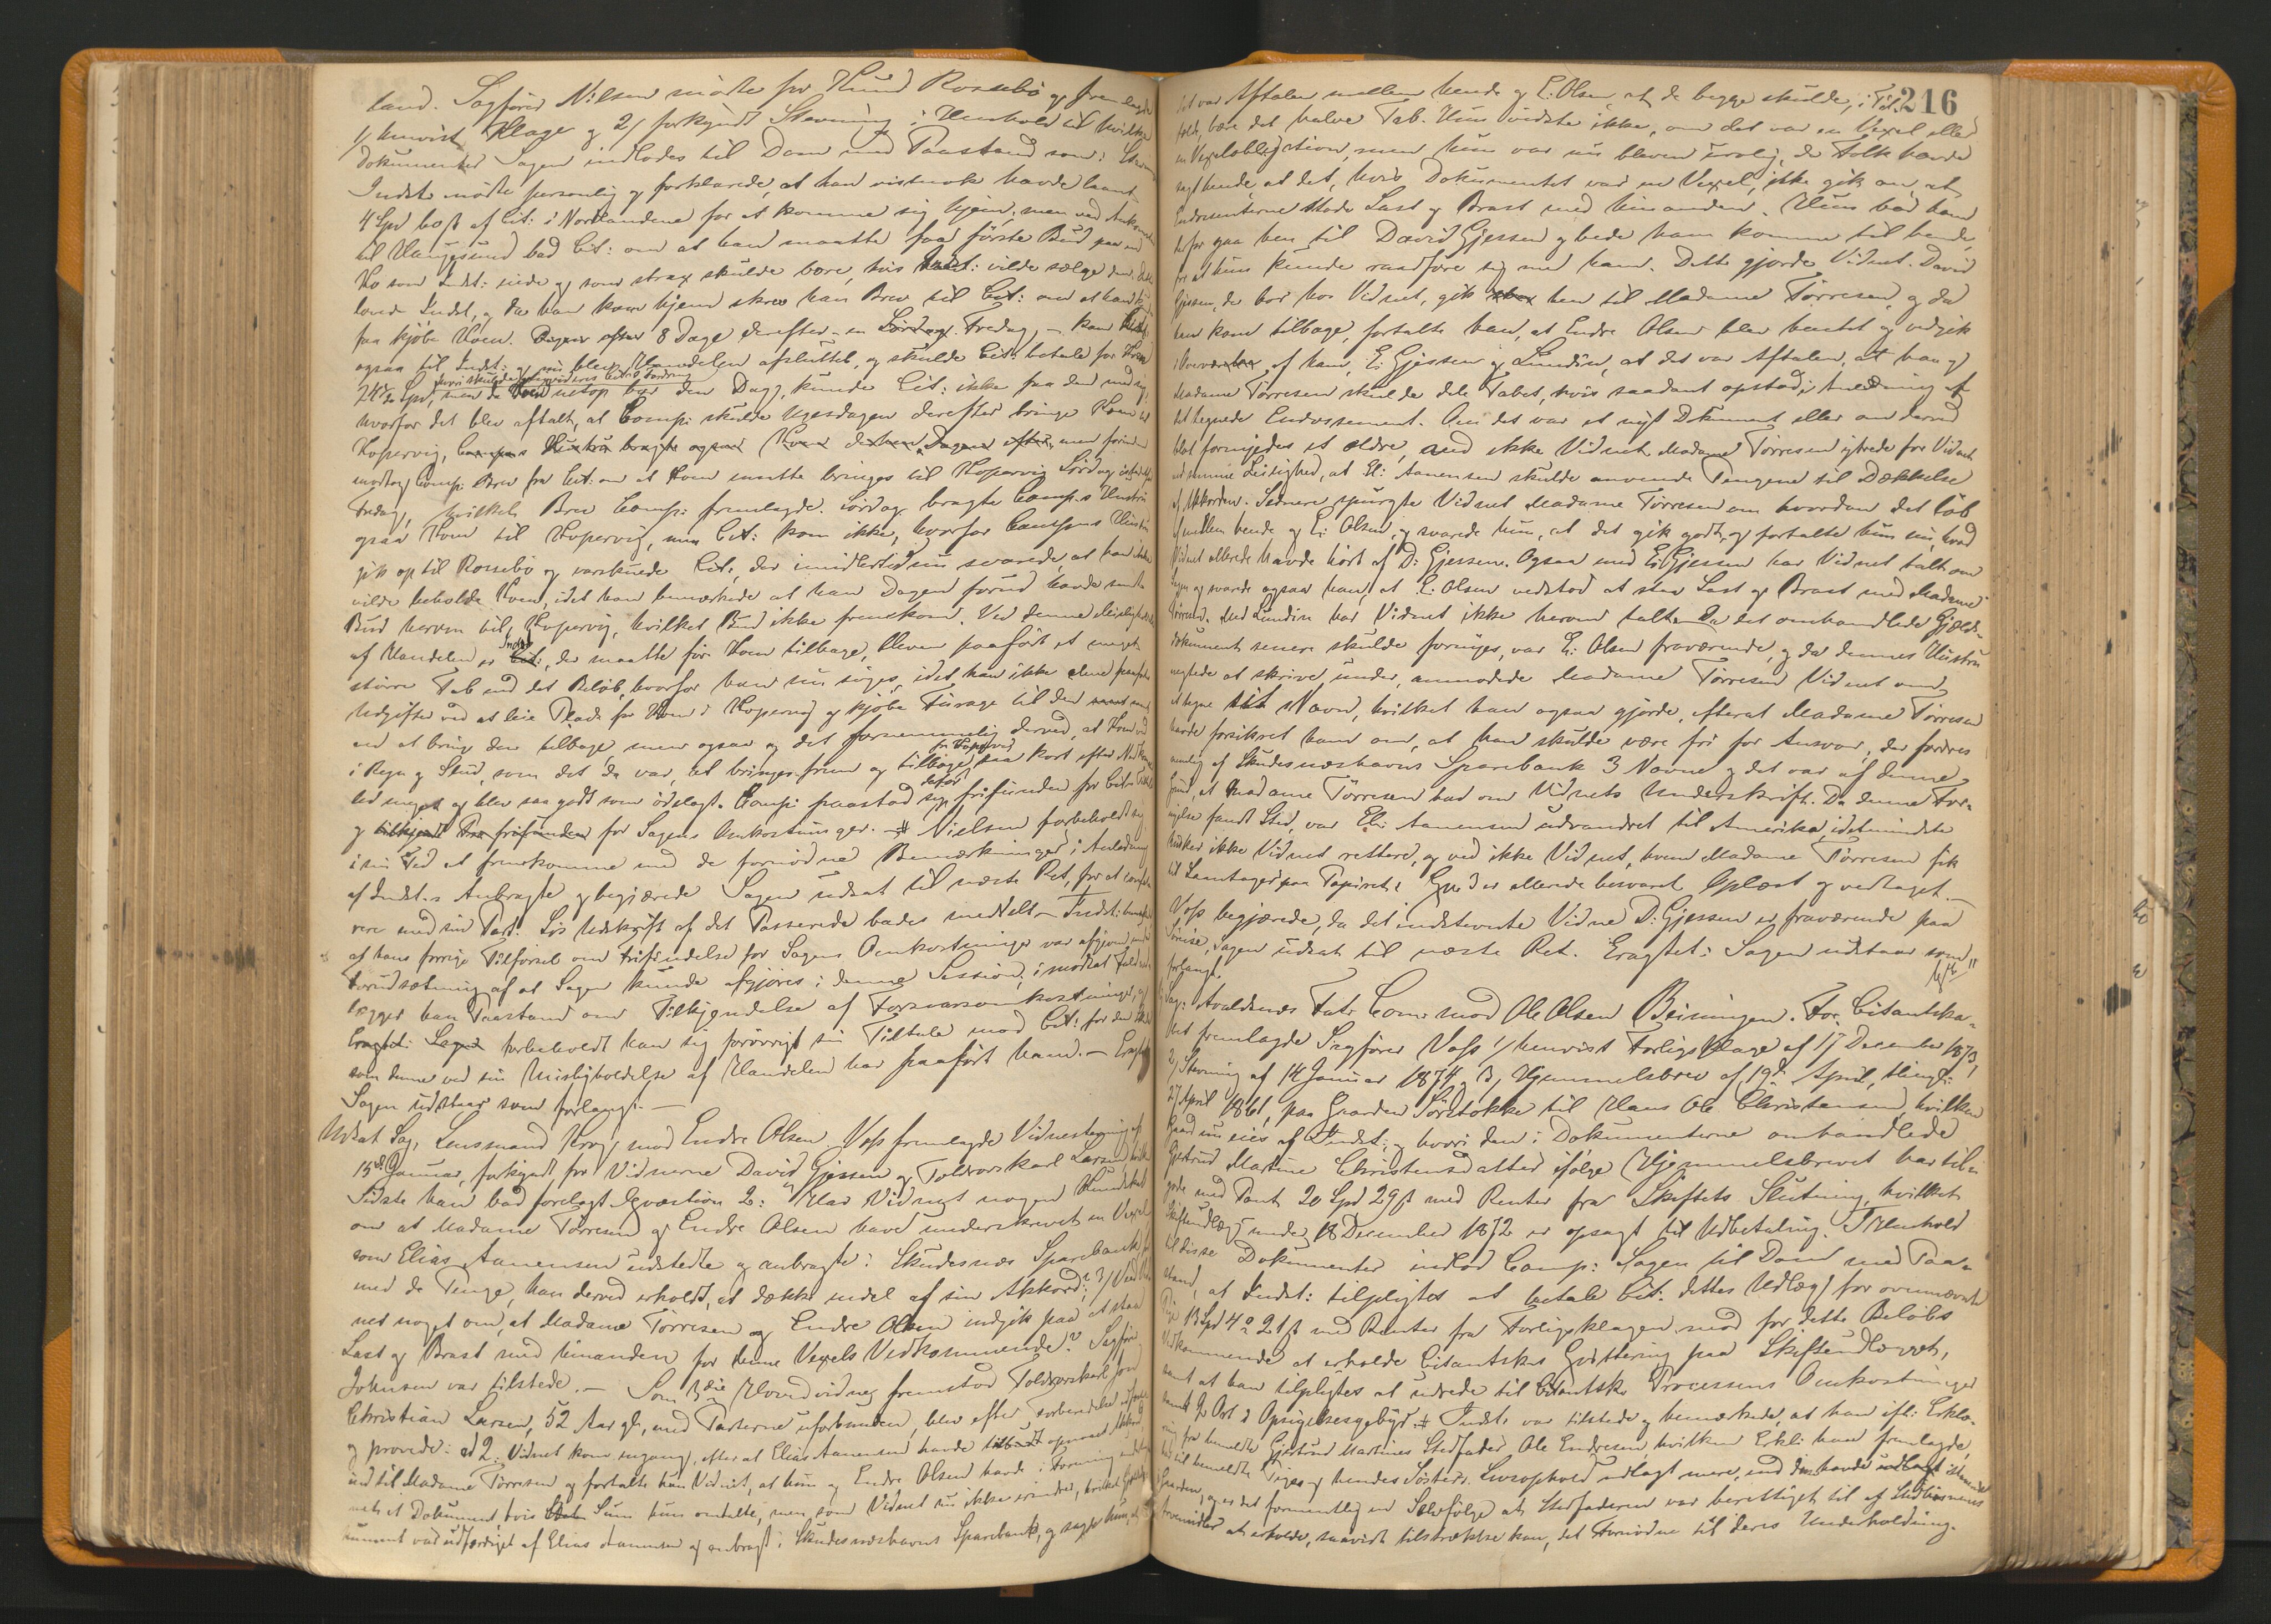 land. Sagfører Nilsen mødte for Knud Rossebø og fremlagde
1/ henvist Klage og 2/ forkyndt Stevning i Henhold til hvilke
Dokumenter Sagen indlodes til Dom med Paastand som i
Indst. mødte personlig og forklarede, at han vistnok havde laant
4 Spd hos af Cit: i Nordlandene for at komme sig hjem, men ved Ankomsten
til Haugesund bad Cit: om at han maatte faa første Bud paa en
Ko som Indst: eiede og som strax skulde bære, hvis Indst: vilde sælge den.
lovede Indst, og da han kom hjem skrev han Brev til Cit: om at han
faa kjøbe Koen. 8 Dage derefter - en Fredag - kom
ogsaa til Indst: og nu blev Handelen afsluttet, og skulde Cit: betale for Koen
24½ Spd, men da netop bar den Dag, kunde Cit: ikke faa den med sig,
hvorfor det blev aftalt, at Comp: skulde Ugesdagen derefter bringe Koen til
Kopervig, Comp.s Hustru bragte ogsaa Koen Dagen efter, men forinden
modtog Comp: Brev fra Cit: om at Koen maatte bringes til Kopervig Lørdag istedetfor
Fredag, hvilket Brev Comp: fremlagde. Lørdag bragte Comp.s Hustru
ogsaa Koen til Kopervig, men Cit: kom ikke, hvorfor Comp.s Hustru
gik op til Rossebø og varskuede Cit:, der imidlertid nu svarede, at han ikke
vilde beholde Koen, idet han bemærkede at han Dagen forud havde sendt
Bud herom til Kopervig, hvilket Bud ikke fremkom. Ved denne Misligholdelse
af Handelen er Indst:, der maatte føre Koen tilbage, bleven paaført et meget
større Tab end det Beløb, hvorfor han nu søges, idet han ikke alene paaførtes
Udgifter ved at leie Plads for Koen i Kopervig og kjøbe Furage til den samt
ved at bringe den tilbage, men ogsaa og det fornemmelig derved, at Koen ved
i Regn og Slud, som det da var, at bringes frem og tilbage fra Kopervig saa kort efter
led meget og blev saa godt som ødelagt. Comp: paastod sig derfor frifunden for Cit.s Tiltale
og for Sagens Omkostninger. - Nielsen forbeholdt sig
i sin Tid at fremkomme med de fornødne Bemærkninger i Anledning
af Indst.s Anbragte og begjærede Sagen udsat til næste Ret, for at
rere med sin Part. Løs Udskrift af det Passerede bades meddelt. - Indst:
at hans forrige Tilførsel om Frifindelse for Sagens Omkostninger var afgiven under
Forudsætning af at Sagen kunde afgjøres i denne Session; i modsat Fald ned-
lægges han Paastand om Tilkjendelse af Forsvarsomkostninger, og
forbeholdt han sig forøvrigt sin Tiltale mod Cit: for den Skade
som denne ved sin Misligholdelse af Handelen har paaført ham. - Eragtet
Sagen udstaar som forlangt. -
Udsat Sag, Lensmand Krog mod Endre Olsen. Voss fremlagde Vidnestevning af
15de Januar, forkyndt for Vidnerne David Gjessen og Toldvorskarl Larsen, hvilken
Sidste han bad forelagt Qvæstion 2: Har Vidnet nogen Kundskab
om at Madame Tørresen og Endre Olsen have underskrevet en Vexel
som Elias Aanensen udstedte og anbragte i Skudesnæs Sparebank for
med de Penge, han derved erholdt, at dække endel af sin Akkord; 3/ Veed Vid-
net noget om, at Madame Tørresen og Endre Olsen indgik paa at staa
Last og Brast med hinanden for denne Vexels Vedkommende? Sagfører
Johnsen var tilstede. - Som 3die Hovedvidne fremstod Toldvorskarl Jon
Christian Larsen, 52 Aar gl., med Parterne uforbunden, blev efter Forberedelse
og provede: ad 2. Vidnet kom engang, efter at Elias Aanensen havde opnaaet Akkord
ind til Madame Tørresen og fortalte hun Vidnet, at hun og Endre Olsen havde i Forening
net et Dokument hvis Sum hun omtalte, men som Vidnet nu ikke erindrer, hvilket
kument var udfærdiget af Elias Aanensen og anbragt i Skudesnæshavns Sparebank, og sagde hun, at
216
det var Aftalen mellem hende og E. Olsen, at de begge skulde, i Til-
fælde, bære det halve Tab. Hun vidste ikke, om det var en Vexel eller
en Vexelobligation, men hun var nu bleven urolig, da Folk havde
sagt hende, at det, hvis Dokumentet var en Vexel, ikke gik an, at
Endossenterne stode Last og Brast med hinanden. Hun bad ham
derfor gaa hen til David Gjessen og bede ham komme til hende,
for at hun kunde raadføre sig med ham. Dette gjorde Vidnet. David
Gjessen, der bor hos Vidnet, gik hen til Madame Tørresen, og da
han kom tilbage, fortalte han, at Endre Olsen blev hentet og vedgik
i Overvær af ham, E. Gjessen og Lundin, at det var Aftalen, at han og
Madame Tørresen skulde dele Tabet, hvis saadant opstod i Anledning af
det tegnede Endossement. Om det var et nyt Dokument eller om derved
blot fornyedes et ældre, ved ikke Vidnet. Madame Tørresen ytrede for Vidnet
ved samme Leilighed, at El: Aanensen skulde anvende Pengene til Dækkelse
af Akkorden. Sednere spurgte Vidnet Madame Tørresen om hvordan det løb
af mellem hende og E: Olsen, og svarede hun, at det gik godt, og fortalte hun nu, hvad
Vidnet allerede havde hørt af D: Gjessen. Ogsaa med E. Gjessen har Vidnet talt om
Sagen og svarede ogsaa han, at E. Olsen vedstod at staa Last og Brast med Madame
Tørresen. Med Lundin har Vidnet ikke herom talt. Da det omhandlede Gjælds-
dokument senere skulde fornyes, var E: Olsen fraværende, og da dennes Hustru
negtede at skrive under, anmodede Madame Tørresen Vidnet om
at tegne sit Navn, hvilket han ogsaa gjorde, efterat Madame Tørresen
havde forsikret ham om, at han skulde være fri for Ansvar, der fordres
nemlig af Skudesnæshavns Sparebank 3 Navne og det var af denne
Grund, at Madame Tørresen bad om Vidnets Underskrift. Da denne For-
nyelse fandt Sted, var El: Aanensen udvandret til Amerika, idetmindste
husker ikke Vidnet rettere, og ved ikke Vidnet, hvem Madame Tørresen fik
til Laantager paa Papiret. Qvæ 3 er allerede besvaret. Oplæst og vedtaget. -
Voss begjærede, da det indstevnte Vidne D: Gjessen er fraværende paa
Reise, Sagen udsat til næste Ret. Eragtet: Sagen udstaar som
forlangt.
Sag: Avaldsnæs Fat: Com: mod Ole Olsen Beiningen. For Citantska-
bet fremlagde Sagfører Voss 1/ henvist Forligsklage af 17 December 1873,
2/ Stevning af 14 Januar 1874, 3/ Hjemmelsbrev af 19de April, thingl:
27 April 1861, paa Gaarden Sørstokke til Hans Ole Christensen, hvilken
Gaard nu eies af Indst:, og hvori den i Dokumenterne omhandlede
Gjertrud Martine Christensdatter ifølge Hjemmelsbrevet har til-
gode med Pant 20 Spd 29 s med Renter fra Skiftets Slutning, hvilket
Skifteudlæg under 18 December 1872 er opsagt til Udbetaling. I Henhold
til disse Dokumenter indlod Comp: Sagen til Dom med Paa-
stand, at Indst: tilpligtes at betale Cit: dettes Udlæg for ovennævnte
Pige 13 Spd 4 o 21 s med Renter fra Forligsklagen mod for dette Beløbs
Vedkommende at erholde Citantskets Qvittering paa Skifteudlægget,
samt at han tilpligtes at udrede til Citantsk. Processens Omkostninger
samt 2 Ort i Opsigelsesgebyr. Indst: var tilstede og bemærkede, at han ifl: Erklæ-
ring fra bemeldte Gjertrud Martines Stedfader, Ole Endresen hvilken Erkl: han fremlagde,
har til bemeldte Piges og hendes Søsters Livsophold udlagt mere, end de havde
i Gaarden, og er det formentlig en Selvfølge at Stedfaderen var berettiget til af Stedbørnenes
Arvemidler at erholde, saavidt tilstrække kan, det Fornødne til deres Underholdning.